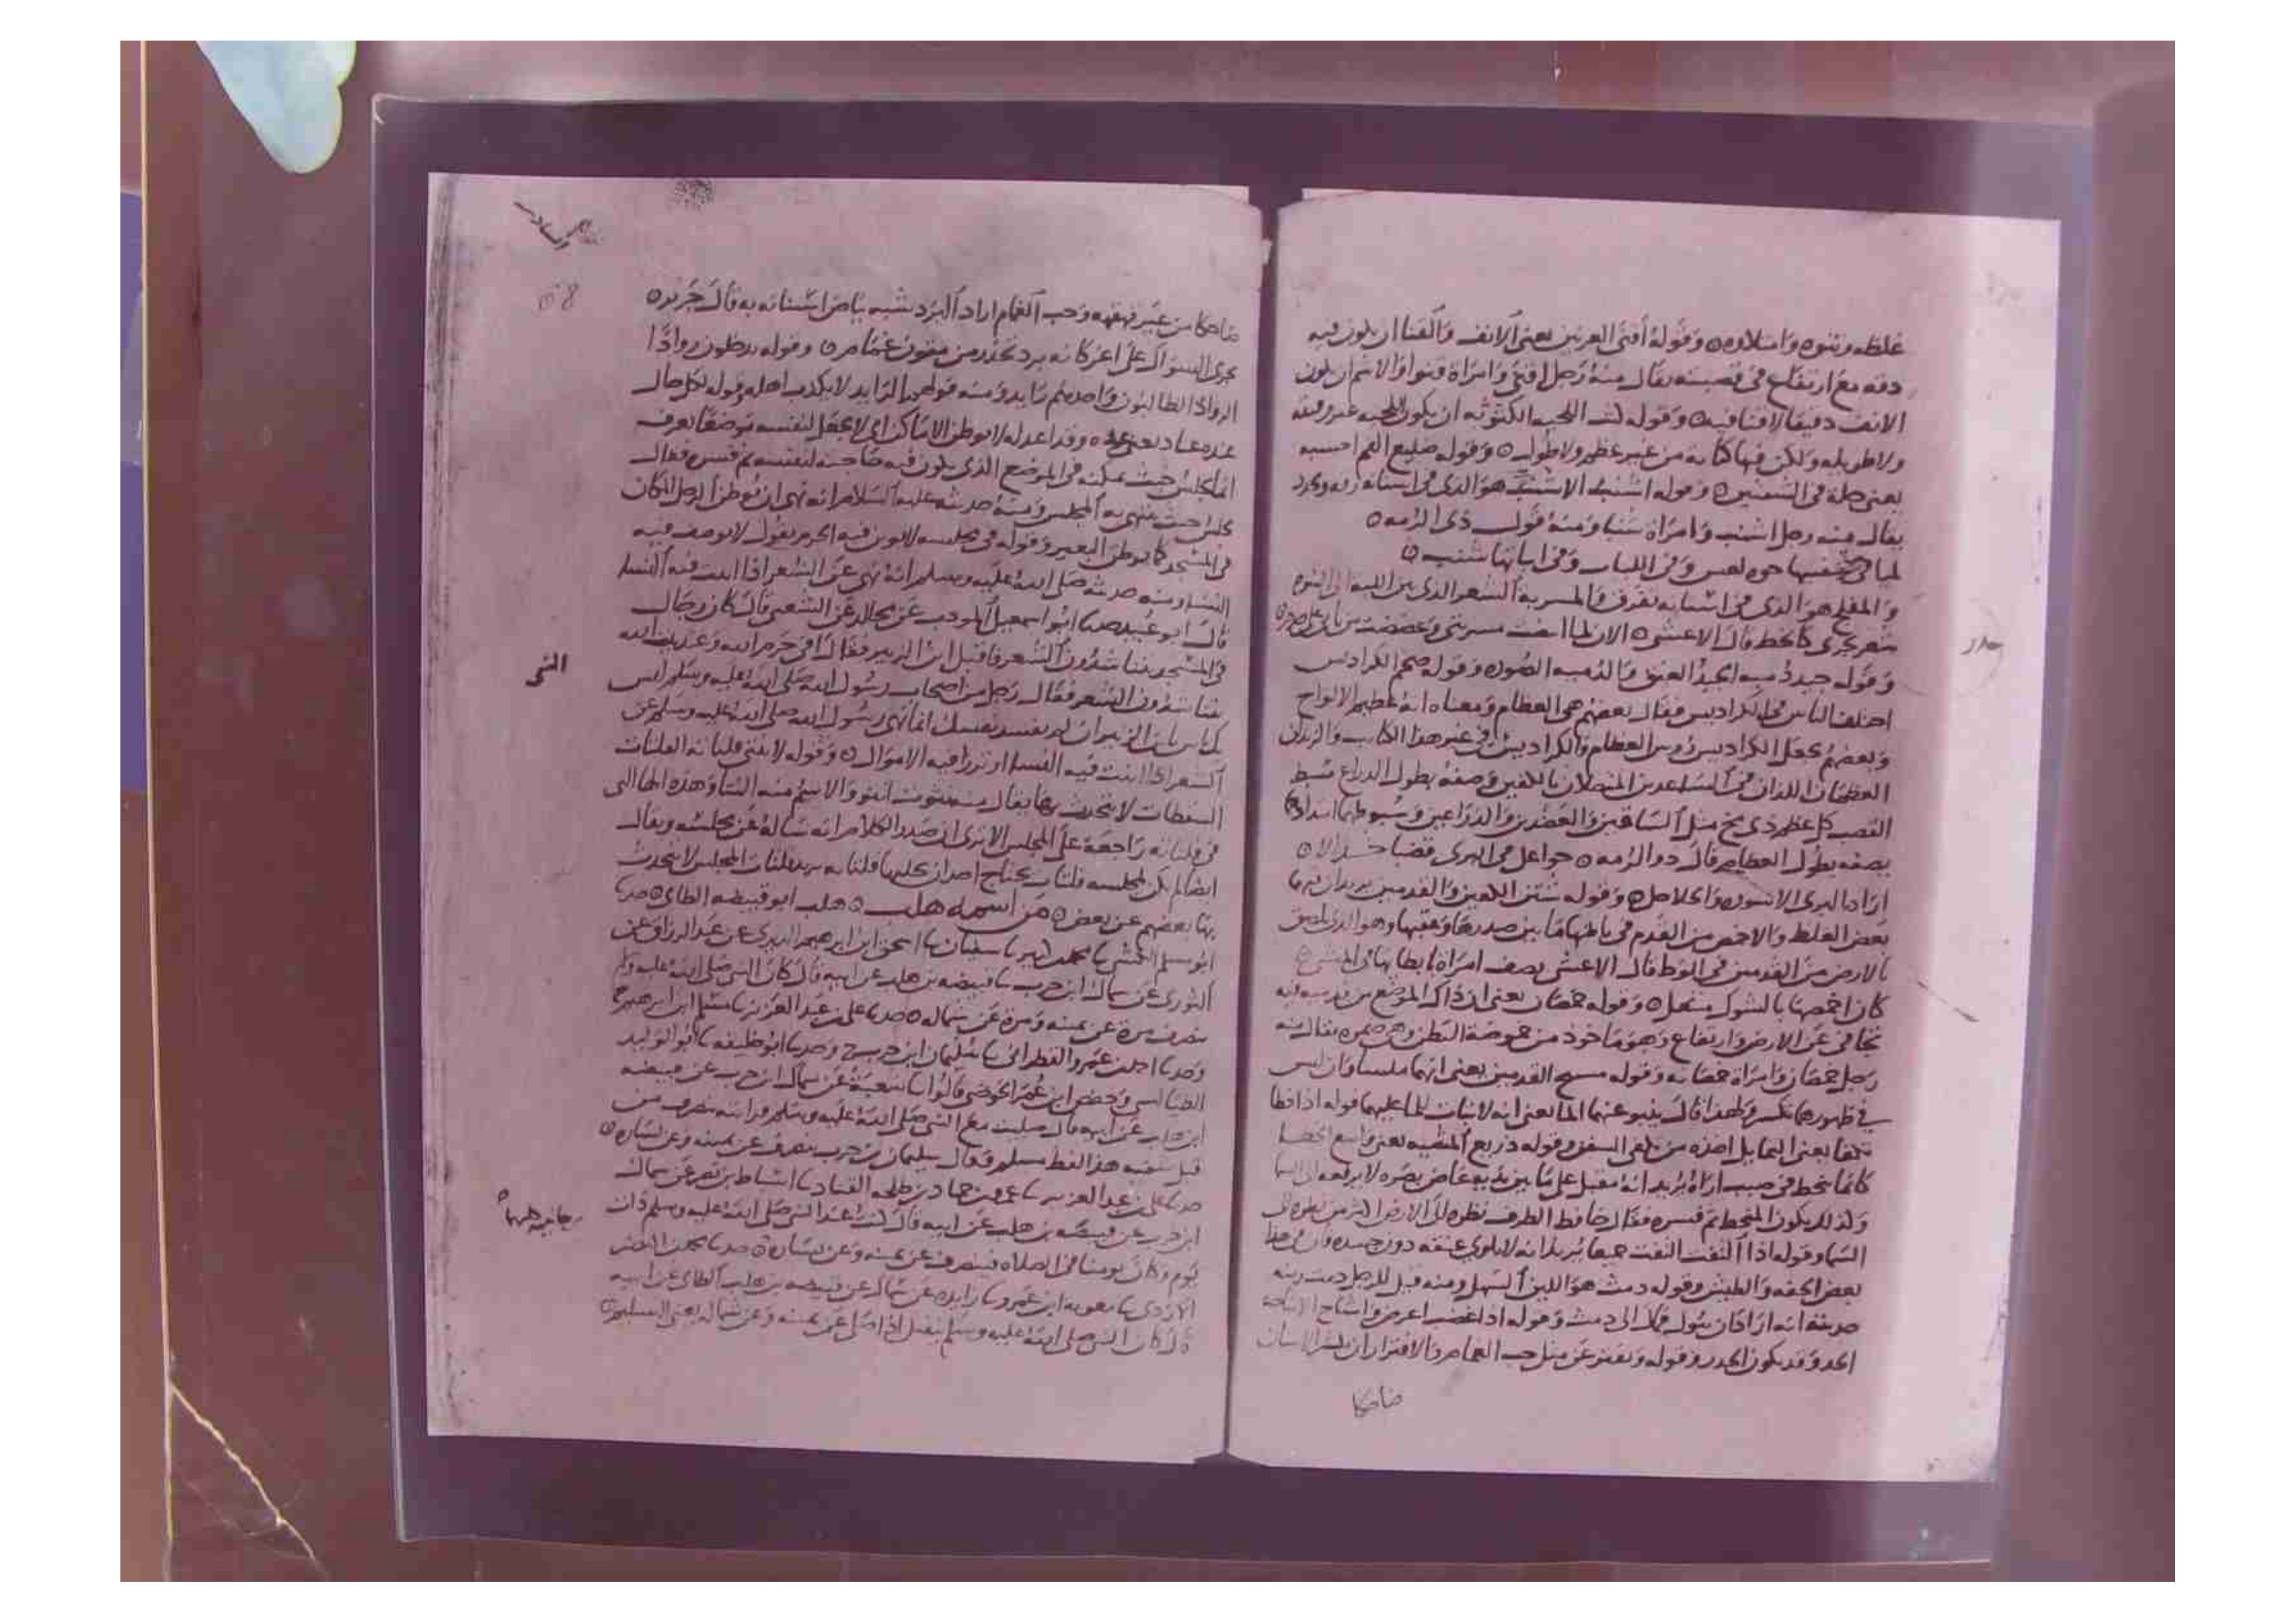 غلظه ونتوه وامتلاوه وقوله أقنى العرنين يعنى الانف والقنا ان يكون فيه
دقه مع ارتفاع فى قصبته يقال منه رجل اقنى وامراة قنوا والاشم ان يكون
الانف دقيقا لا قنا فيه وقوله كث اللحيه الكثوثه ان يكون اللحيه غير رقيقه
ولا طويله ولكن فيها كثاثه من غير عظم ولا طول وقوله ضليع الفم احسبه
يعنى حلة فى الشفتين وقوله اشنب الاشنب هو الذى فى اسنانه رقه وتحدد
يقال منه رجل اشنب وامراة شنبا ومنه قول ذى الرمه
لميا فى شفتيها حوه لعس وفى اللثات وفى انيابها شنب
والمفلج هو الذى فى اسنانه تفرق والمسربة الشعر الذى بين اللبه الى السره
شعر يجرى كالخط قال الاعشى الان لما ابيضت مسربتى وعضضت من نابى على جذم
وقوله جيد دميه الجيد العنق والدميه الصوره وقوله ضخم الكراديس
اختلف الناس فى الكراديس فقال بعضهم هى العظام ومعناه انه عظيم الالواح
وبعضهم يجعل الكراديس رؤس العظام والكراديس فى غير هذا الكتايب والزندان
العظمان اللذان فى الساعدين المتصلان بالكفين وصفه بطول الذراع سبط
القصب كل عظم ذى مخ مثل الساقين والعضدين والذراعين وسبوطهما امتدادهما
يصفه بطول العظام قال ذو الرمه جواعل فى البرى قصبا خدالا
اراد بالبرى الاسوره والخلاخل وقوله شثن الكفين والقدمين يريد ان فيهما
بعض الغلظ والاخمص من القدم فى باطنها ما بين صدرها وعقبها وهو الذى لا يلصق
بالارض من القدمين فى الوطا قال الاعشى يصف امراة بابطائها فى المشى
كان اخمصها بالشوك منتعل وقوله خمصان يعنى ان ذاك الموضع من قدميه فيه
تجافى عن الارض وارتفاع وهو ماخوذ من خموصة البطن وهى ضمره يقال منه
رجل خمصان وامراة خمصانه وقوله مسيح القدمين يعنى انهما ملساوان ليس
فى ظهورهما تكسر ولهذا قال ينبو عنهما الما يعنى انه لا ثبات للما عليهما قوله اذا خطا
تكفا يعنى التمايل اخذه من تكفى السفن وقوله ذريع المشيه يعنى واسع الخطا
كانما ينحط فى صبب اراه يريد انه مقبل على ما بين يديه غاض بصره لا يرفعه الى السما
وكذلك يكون المنحط ثم فسره فقال خافض الطرف نظره الى الارض اكثر من نظره الى
السما وقوله اذا التفت التفت جميعا يريد انه لا يلوى عنقه دون جسده فان فى هذا
بعض الخفه والطيش وقوله دمث هو اللين السهل ومنه قيل للرمل دمث ومنه
حديثه انه اراد ان يبول فمال الى دمث وقوله اذا غضب اعرض واشاح الاشاحه
الجد وقد يكون الحذر وقوله ويفتر عن مثل حب الغمام والافترار ان تكشر الاسنان
ضاحكا
ضاحكا من غير قهقهه وحب الغمام اراد البرد شبه بياض اسنانه به قال جرير
يجرى السواك على اغر كانه برد تحدر من متون غمام وقوله يدخلون روادا
الرواد الطالبون واحدهم رايد ومنه قولهم الرايد لا يكذب اهله وقوله لكل حال
عنده عتاد يعنى عده وقد اعد له لا يوطن الاماكن اى لا يجعل لنفسه موضعا يعرف
انما يجلس حيث يمكنه فى الموضع الذى يكون فيه حاجته لنفسه ثم فسره فقال
يجلس حيث ينتهى به المجلس ومنه حديثه عليه السلام انه نهى ان يوطن الرجل المكان
فى المسجد كما يوطن البعير وقوله فى مجلسه لا تؤبن فيه الحرم يقول لا توصف فيه
النسا ومنه حديثه صلى الله عليه وسلم انه نهى عن الشعر اذا ابنت فيه النسا
قال ابو عبيد حدثنا ابو اسمعيل المودب عن مجالد عن الشعبى قال كان رجال
فى المسجد يتناشدون الشعر فاقبل ابن الزبير فقال افى حرم الله وعند بيت الله
تتناشدون الشعر فقال رجل من اصحاب رسول الله صلى الله عليه وسلم ليس
بك باس يابن الزبير ان لم تفسد نفسك انما نهى رسول الله صلى الله عليه وسلم عن
الشعر اذا ابنت فيه النسا او تزرا فيه الاموال وقوله لا تنثى فلتاته الفلتات
السقطات لا يتحدث بها يقال منه نثوت انثو والاسم منه النثا وهذه الها التى
فى فلتاته راجعة على المجلس الا ترى ان صدر الكلام انه ساله عن مجلسه ويقال
ايضا لم يكن لمجلسه فلتات يحتاج احد ان يحكيها فلتاته يريد فلتات المجلس لا يتحدث
بها بعضهم عن بعض من اسمه هلب هلب ابو قبيصه الطاى حدثنا
ابو مسلم الكشى نا محمد بن كثير نا سفيان نا اسحق ابن ابرهيم الدبرى عن عبد الرزاق عن
الثورى عن سماك ابن حرب نا قبيصه بن هلب عن ابيه قال كان النبى صلى الله عليه وسلم
ينصرف مرة عن يمينه ومرة عن شماله حدثنا على بن عبد العزيز نا مسلم ابن ابرهيم ح
وحدثنا احمد بن عمرو القطرانى نا سليمان ابن حرب ح وحدثنا ابو خليفه نا ابو الوليد
الطيالسى وحفص ابن عمر الحوضى قالوا نا شعبة عن سماك ابن حرب عن قبيصه
ابن هلب عن ابيه قال صليت مع النبى صلى الله عليه وسلم فرايته ينصرف من
قبل شقيه هذا لفظ مسلم وقال سليمان بن حرب ينصرف عن يمينه وعن يساره
حدثنا على بن عبد العزيز نا عمرو بن حماد بن طلحه القناد نا اسباط بن نصر عن سماك
ابن حرب عن قبيصه بن هلب عن ابيه قال كنت عند النبى صلى الله عليه وسلم ذات
يوم وكان يومنا فى الصلاه فينصرف عن يمينه وعن يساره حدثنا محمد بن النضر
الازدى نا معويه ابن عمرو نا زايده عن سماك عن قبيصه بن هلب الطاى عن ابيه
قال كان النبى صلى الله عليه وسلم ينفتل اذا صلى عن يمينه وعن شماله يعنى التسليم